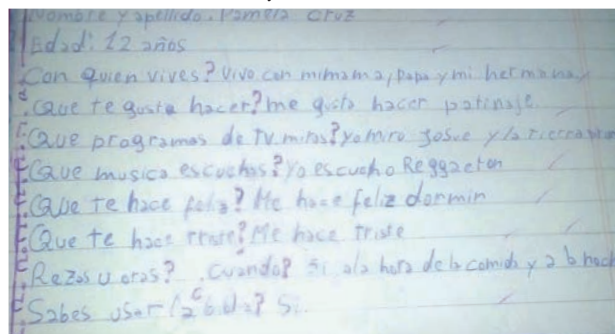 Nombre y apellido. Pamela Cruz
Edad: 12 años
Con quien vives? Vivo con mi mama, papa y mi hermana
Que te gusta hacer? me gusta hacer patinaje
Que programas de tv. miras? yo miro Josue y la tierra
Que musica escuchas? Yo escucho Reggaeton
Que te hace feliz? Me hace feliz dormir
Que te hace triste? Me hace triste
Rezas u oras? Cuando? Si a la hora de la comida y a la noch
Sabes usar la biblia? Si.